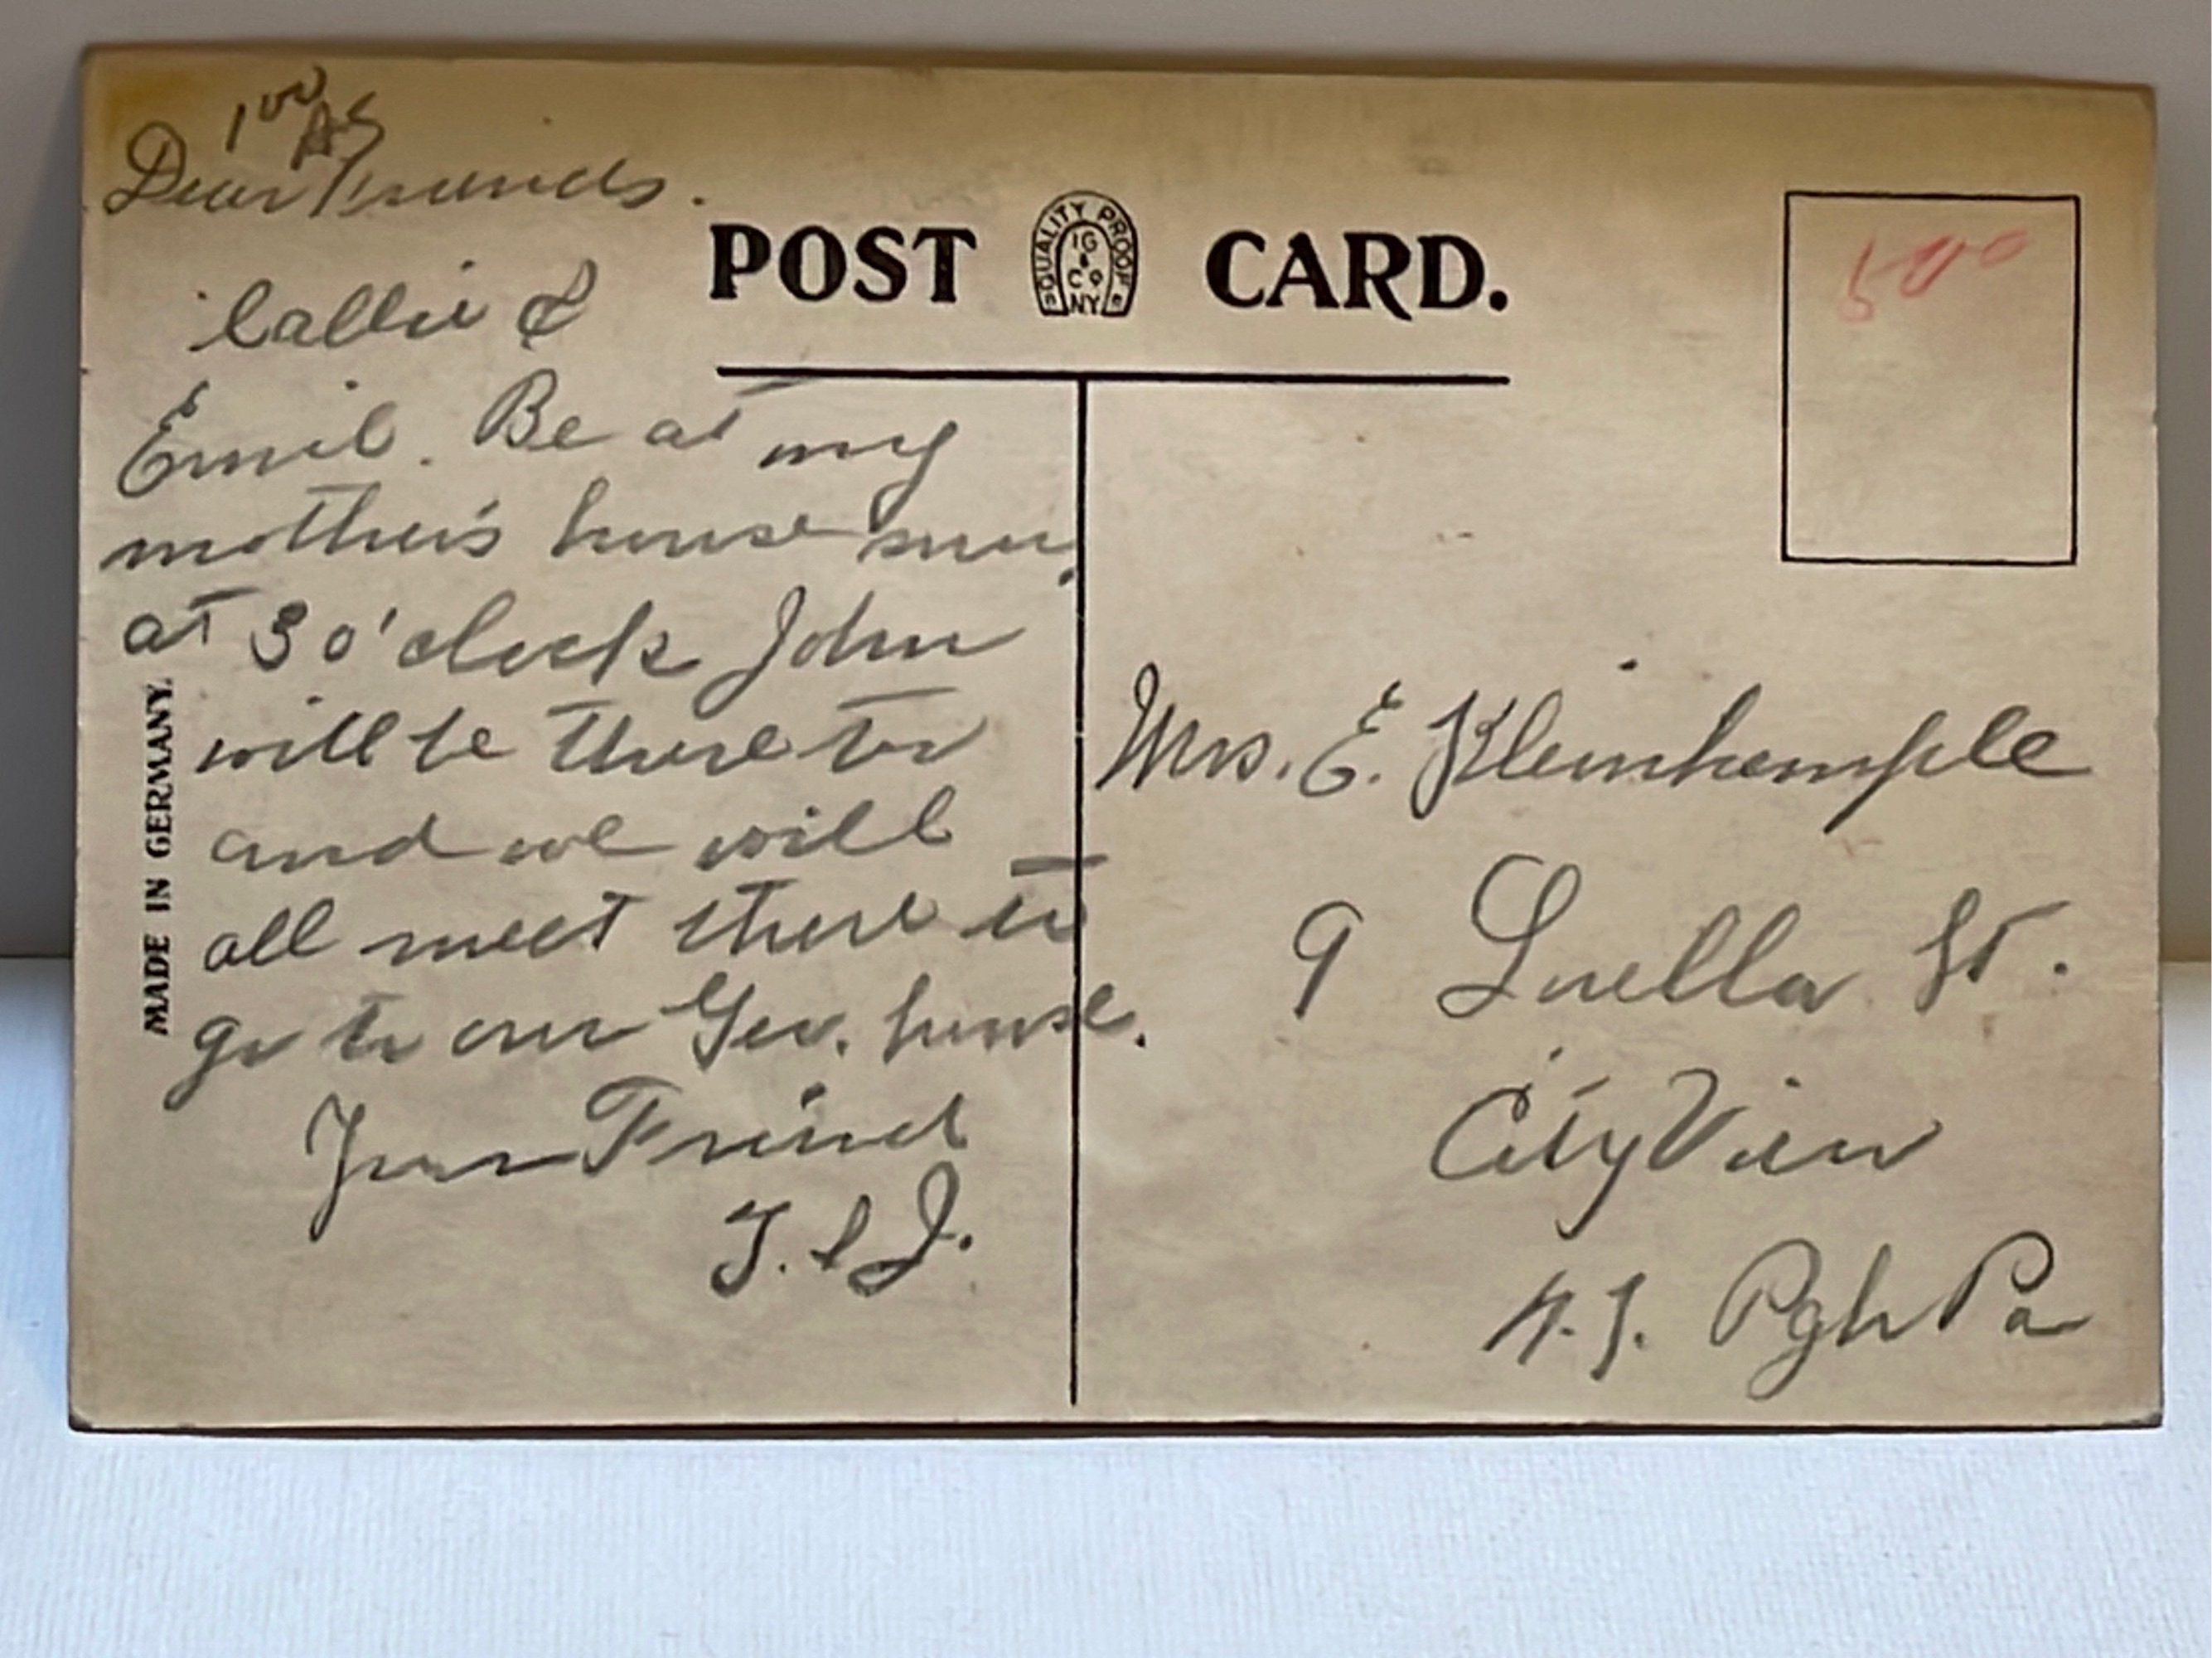 1 00
AS
Dear Friends.
Callie &
Emil. Be at my
mother's house sun.
at 3 o'clock John
will be there to
and we will
all meet there to
go to our Geo. house.
Your Friend
T. & J.
MADE IN GERMANY.
POST CARD.
QUALITY PROOF
IG
& Co
NY
500
Mrs. E. Kleinhample
9 Luella St.
City View
N.S. Pgh Pa